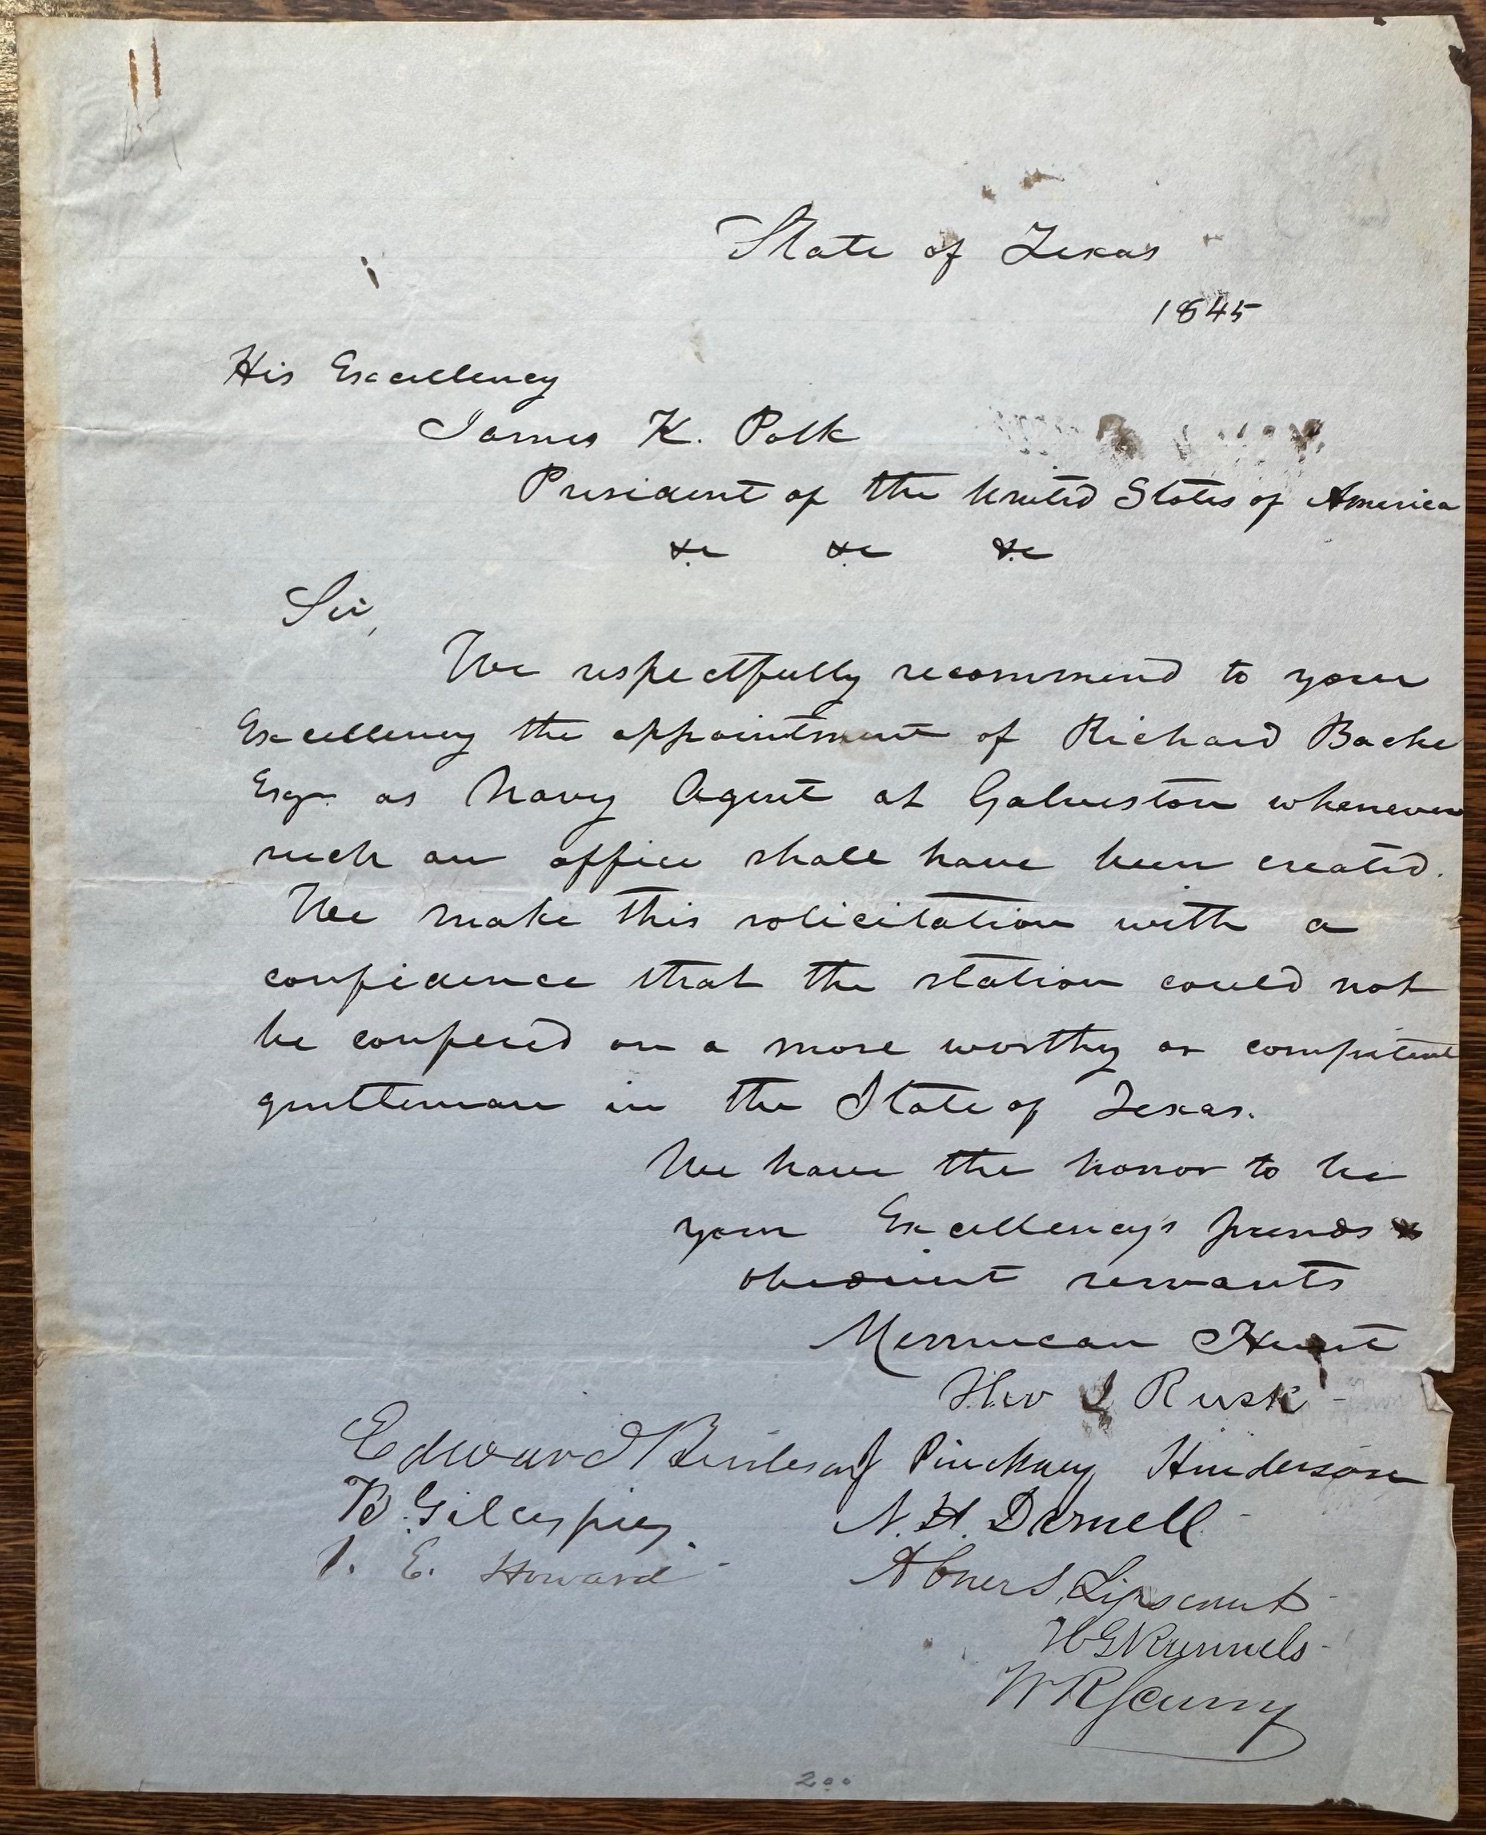 State of Texas
1845
His Excellency
James K. Polk
President of the United States of America
&c &c &c
Sir,
We respectfully recommend to your
Excellency the appointment of Richard Bache
Esqr as Navy Agent at Galveston whenever
such an office shall have been created.
We make this solicitation with a
confidence that the station could not
be confered on a more worthy or competent
gentleman in the State of Texas.
We have the honor to be
your Excellency's friends &
obedient servants
Memucan Hunt
Tho J Rusk
Edward Burleson J Pinckney Henderson
B. Gillespie N. H. Darnell
E. Howard Abner S. Lipscomb
H G Runnels
W R Scurry
200